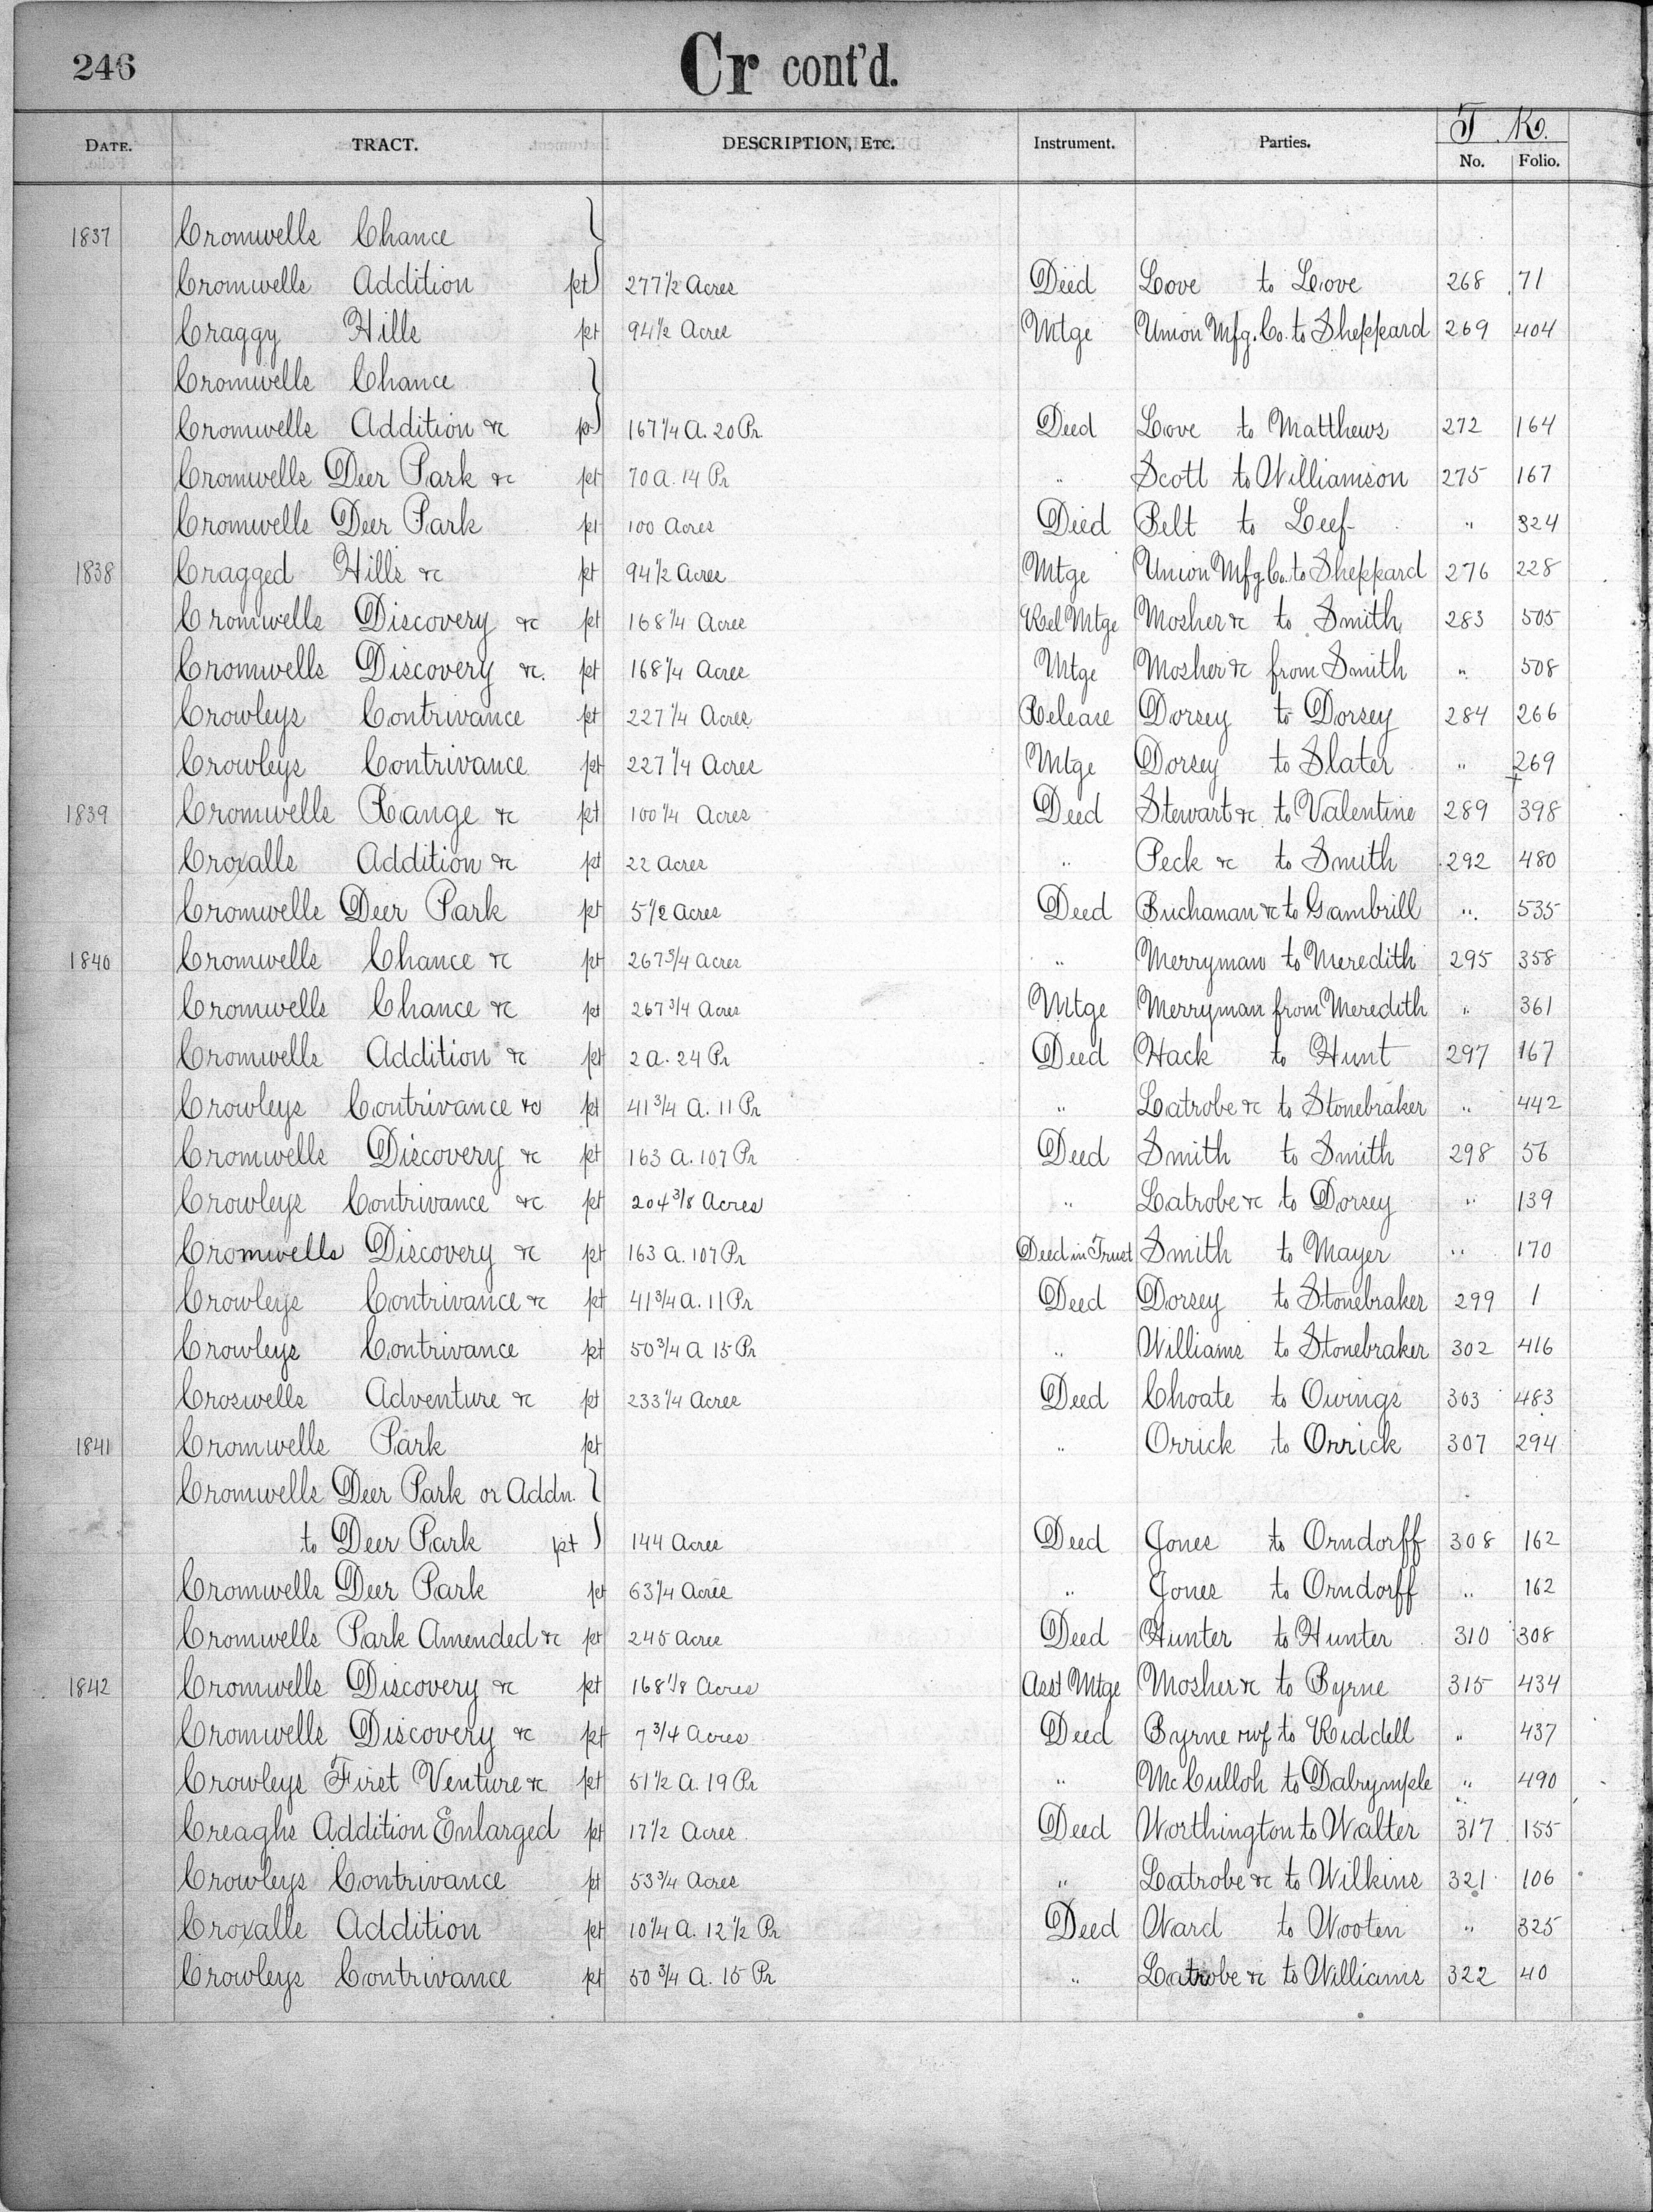 246
Cr cont'd.
DATE. TRACT. DESCRIPTION, ETC. Instrument. Parties. T. K. No. Folio.
1837 Cromwells Chance }
Cromwells Addition pt } 277 1/2 Acres Deed Love to Love 268 71
Craggy Hills pt 94 1/2 Acres Mtge Union Mfg. Co. to Sheppard 269 404
Cromwells Chance }
Cromwells Addition &c pt } 167 1/4 A. 20 Pr Deed Love to Matthews 272 164
Cromwells Deer Park &c pt 70 A. 14 Pr " Scott to Williamson 275 167
Cromwells Deer Park pt 100 Acres Deed Belt to Leef " 324
1838 Cragged Hills &c pt 94 1/2 Acres Mtge Union Mfg. Co. to Sheppard 276 228
Cromwells Discovery &c pt 168 1/4 Acres Rel Mtge Mosher &c to Smith 283 505
Cromwells Discovery &c. pt 168 1/4 Acres Mtge Mosher &c from Smith " 508
Crowleys Contrivance pt 227 1/4 Acres Release Dorsey to Dorsey 284 266
Crowleys Contrivance pt 227 1/4 Acres Mtge Dorsey to Slater " 269
1839 Cromwells Range &c pt 100 1/4 Acres Deed Stewart &c to Valentine 289 398
Croxalls Addition &c pt 22 Acres " Peck &c to Smith 292 480
Cromwells Deer Park pt 5 1/2 Acres Deed Buchanan &c to Gambrill " 535
1840 Cromwells Chance &c pt 267 3/4 Acres " Merryman to Meredith 295 358
Cromwells Chance &c pt 267 3/4 Acres Mtge Merryman from Meredith " 361
Cromwells Addition &c pt 2 A. 24 Pr Deed Hack to Hunt 297 167
Crowleys Contrivance &c pt 41 3/4 A. 11 Pr " Latrobe &c to Stonebraker " 442
Cromwells Discovery &c pt 163 A. 107 Pr Deed Smith to Smith 298 56
Crowleys Contrivance &c pt 204 3/8 Acres " Latrobe &c to Dorsey " 139
Cromwells Discovery &c pt 163 A. 107 Pr Deed in Trust Smith to Mayer " 170
Crowleys Contrivance &c pt 41 3/4 A. 11 Pr Deed Dorsey to Stonebraker 299 1
Crowleys Contrivance pt 50 3/4 A 15 Pr " Williams to Stonebraker 302 416
Croswells Adventure &c pt 233 1/4 Acres Deed Choate to Owings 303 483
1841 Cromwells Park pt " Orrick to Orrick 307 294
Cromwells Deer Park or Addn. }
to Deer Park pt } 144 Acres Deed Jones to Orndorff 308 162
Cromwells Deer Park pt 63 1/4 Acres " Jones to Orndorff " 162
Cromwells Park Amended &c pt 245 Acres Deed Hunter to Hunter 310 308
1842 Cromwells Discovery &c pt 168 1/8 Acres Asst Mtge Mosher &c to Byrne 315 434
Cromwells Discovery &c pt 7 3/4 Acres Deed Byrne & wf to Riddell " 437
Crowleys First Venture &c pt 51 1/2 A. 19 Pr " McCulloh to Dalrymple " 490
Creaghs Addition Enlarged pt 17 1/2 Acres Deed Worthington to Walter 317 155
Crowleys Contrivance pt 53 3/4 Acres " Latrobe &c to Wilkins 321 106
Croxalls Addition pt 10 1/4 A. 12 1/2 Pr Deed Ward to Wooten " 325
Crowleys Contrivance pt 50 3/4 A. 15 Pr " Latrobe &c to Williams 322 40